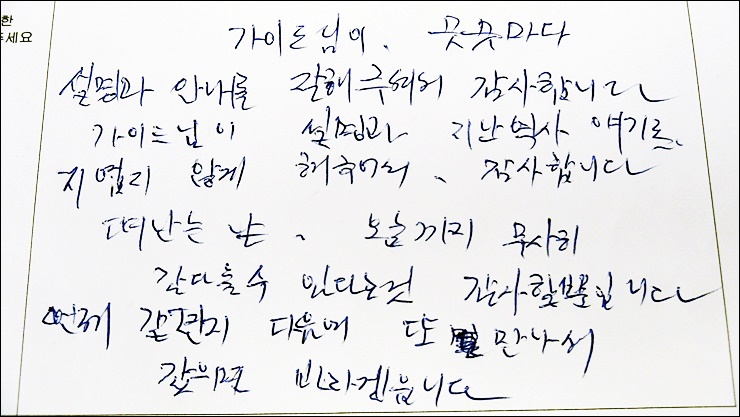 한
주세요
가이드님이. 곳곳마다
설명과 안내를 잘해주셔서 감사합니다
가이드님이 설명과 지난역사 얘기를
지엽지 않게 해주어서. 감사합니다
떠나는 날. 오늘까지 무사히
갈다올수 있다는것 감사할뿐입니다
언제 갈련지 다음에 또 만나서
갔의면 바라겠읍니다